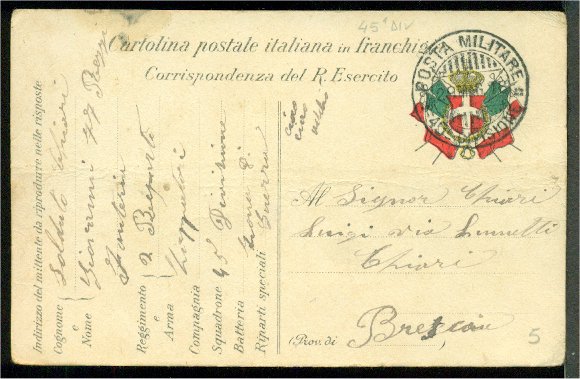 45ª DIV
Cartolina postale italiana in franchigia
Corrispondenza del R. Esercito
POSTA MILITARE
45
DIVISIONE
Indirizzo del mittente da riprodurre nelle risposte
Cognome Soldato Chiari
e
Nome Giovanni 77 Regg
Fanteria
Reggimento 2 Reparto
e
Arma Zappatori
Compagnia
Squadrone 45 Divisione
Batteria Zona di
Riparti speciali Guerra
ciao
ciao
Al Signor Chiari
Luigi via
Chiari
(Prov. di Brescia
5